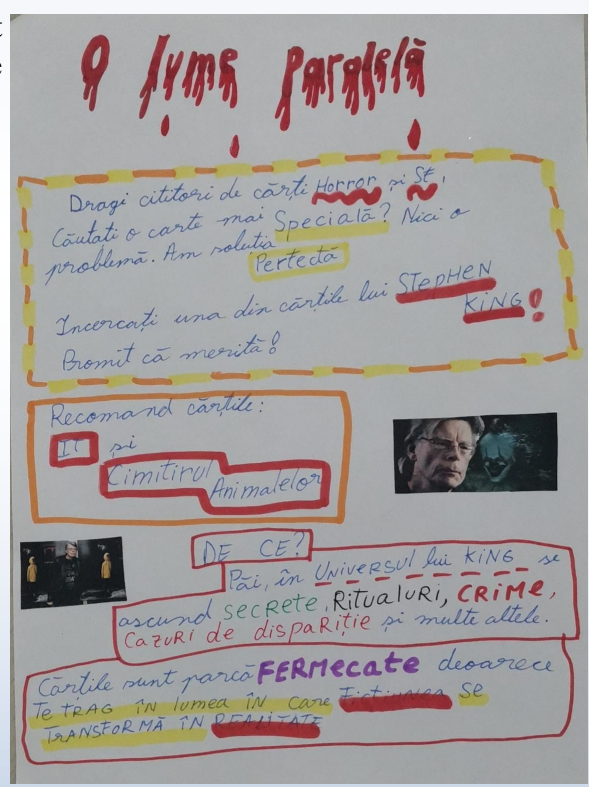 O lume paralelă
Dragi cititori de cărți Horror și SF,
Căutați o carte mai Specială? Nici o
problemă. Am soluția
Perfectă
Încercați una din cărțile lui STEPHEN
KING!
Promit că merită!
Recomand cărțile:
IT și
Cimitirul
Animalelor
DE CE?
Păi, în UNIVERSUL lui KING se
ascund SECRETE, RITUALURI, CRIME,
CAZURI de dispariție și multe altele.
Cărțile sunt parcă FERMECATE deoarece
TE TRAG în lumea în care Ficțiunea SE
TRANSFORMĂ ÎN REALITATE